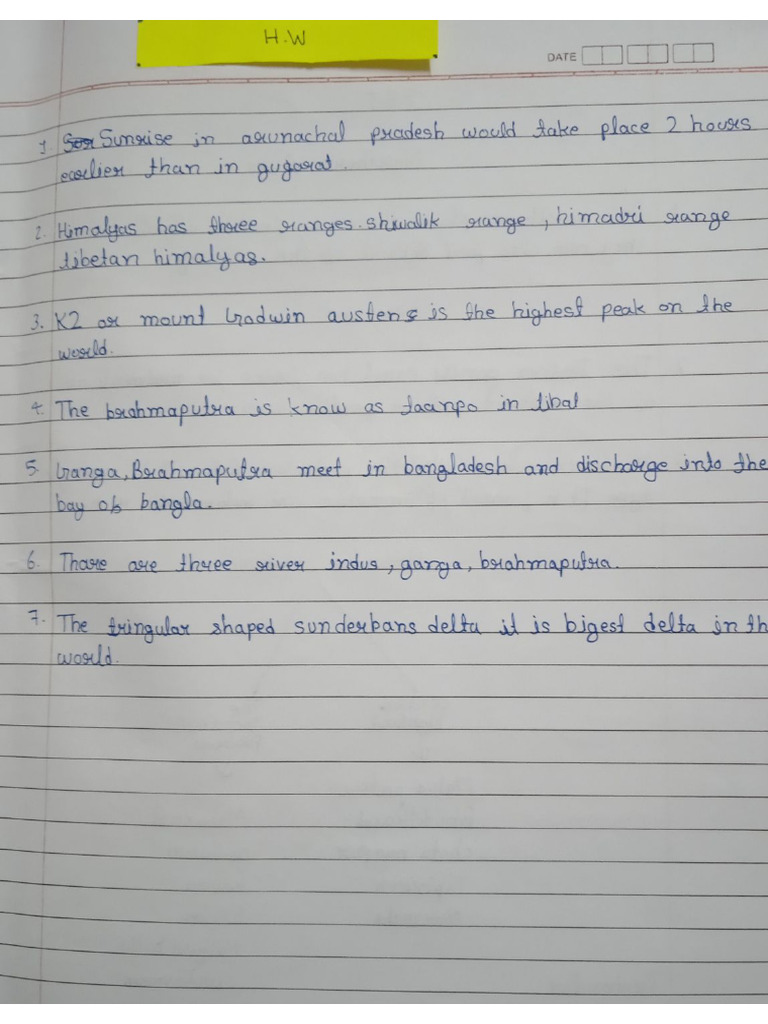 H.W
DATE
1. Sunrise in arunachal pradesh would take place 2 hours
earlier than in gugarat.
2. Himalyas has three ranges. shiwalik range, himadri range
tibetan himalyas.
3. K2 or mount Godwin austens is the highest peak on the
world.
4. The brahmaputra is know as taanpo in tibat
5. Ganga, Brahmaputra meet in bangladesh and discharge into the
bay of bangla.
6. Thare are three river indus, ganga, brahmaputra.
7. The tringular shaped sunderbans delta it is bigest delta in th
world.